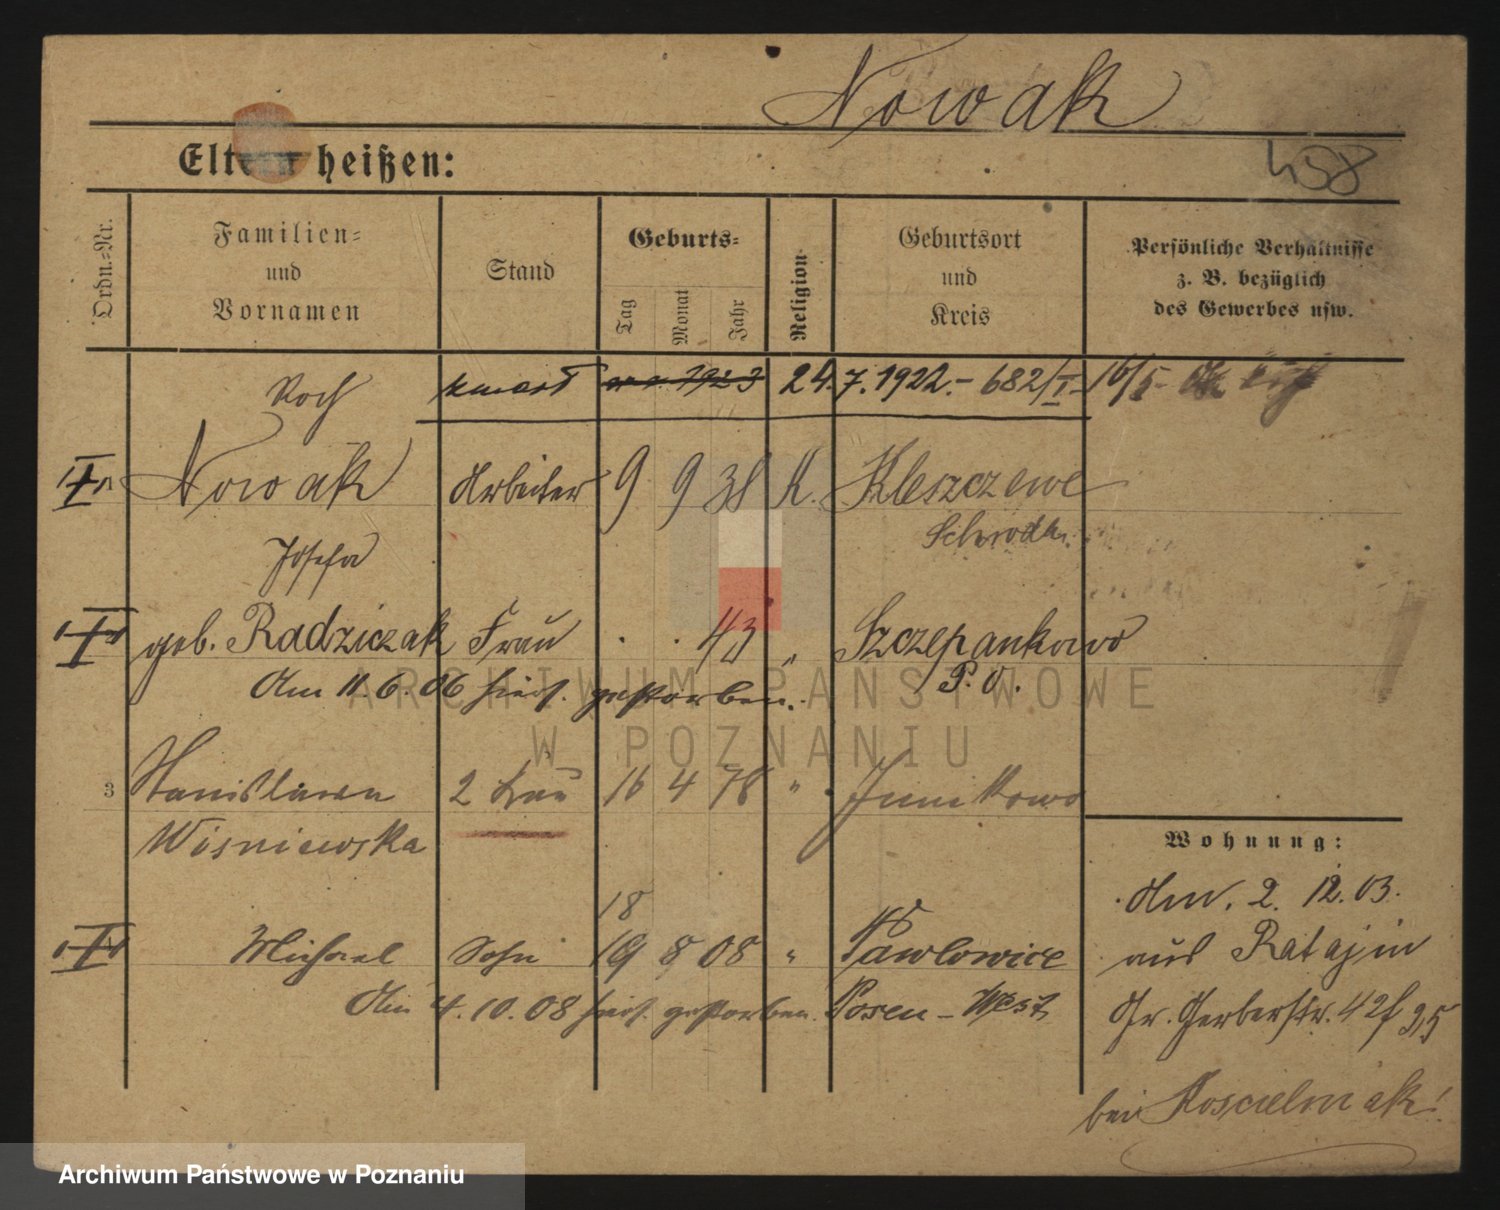 Nowak
Eltern heißen:
458
Ordn.-Nr.
Familien-
und
Vornamen
Stand
Geburts-
Tag
Monat
Jahr
Religion
Geburtsort
und
Kreis
Persönliche Verhältnisse
z. B. bezüglich
des Gewerbes usw.
Roch zmarł 24.7.1922.- 682/I 16/5
1 Nowak Arbeiter 9 9 38 K. Kleszczewo
Schroda
Josefa
geb. Radziczak Frau . . 43 " Szczepankowo
Am 11.6.06 hiers. gestorben. P.O.
3 Stanislawa 2 Frau 16 4 78 " Junikowo
Wisniewska
Wohnung:
Am. 2. 12.03.
18
Michael Sohn 19 8 08 " Pawlowice
aus Ratajin
Am 4.10.08 hiers. gestorben. Posen-West
Gr. Gerberstr. 42 f 3,5
bei Koscielniak!
ARCHIWUM PAŃSTWOWE
W POZNANIU
Archiwum Państwowe w Poznaniu